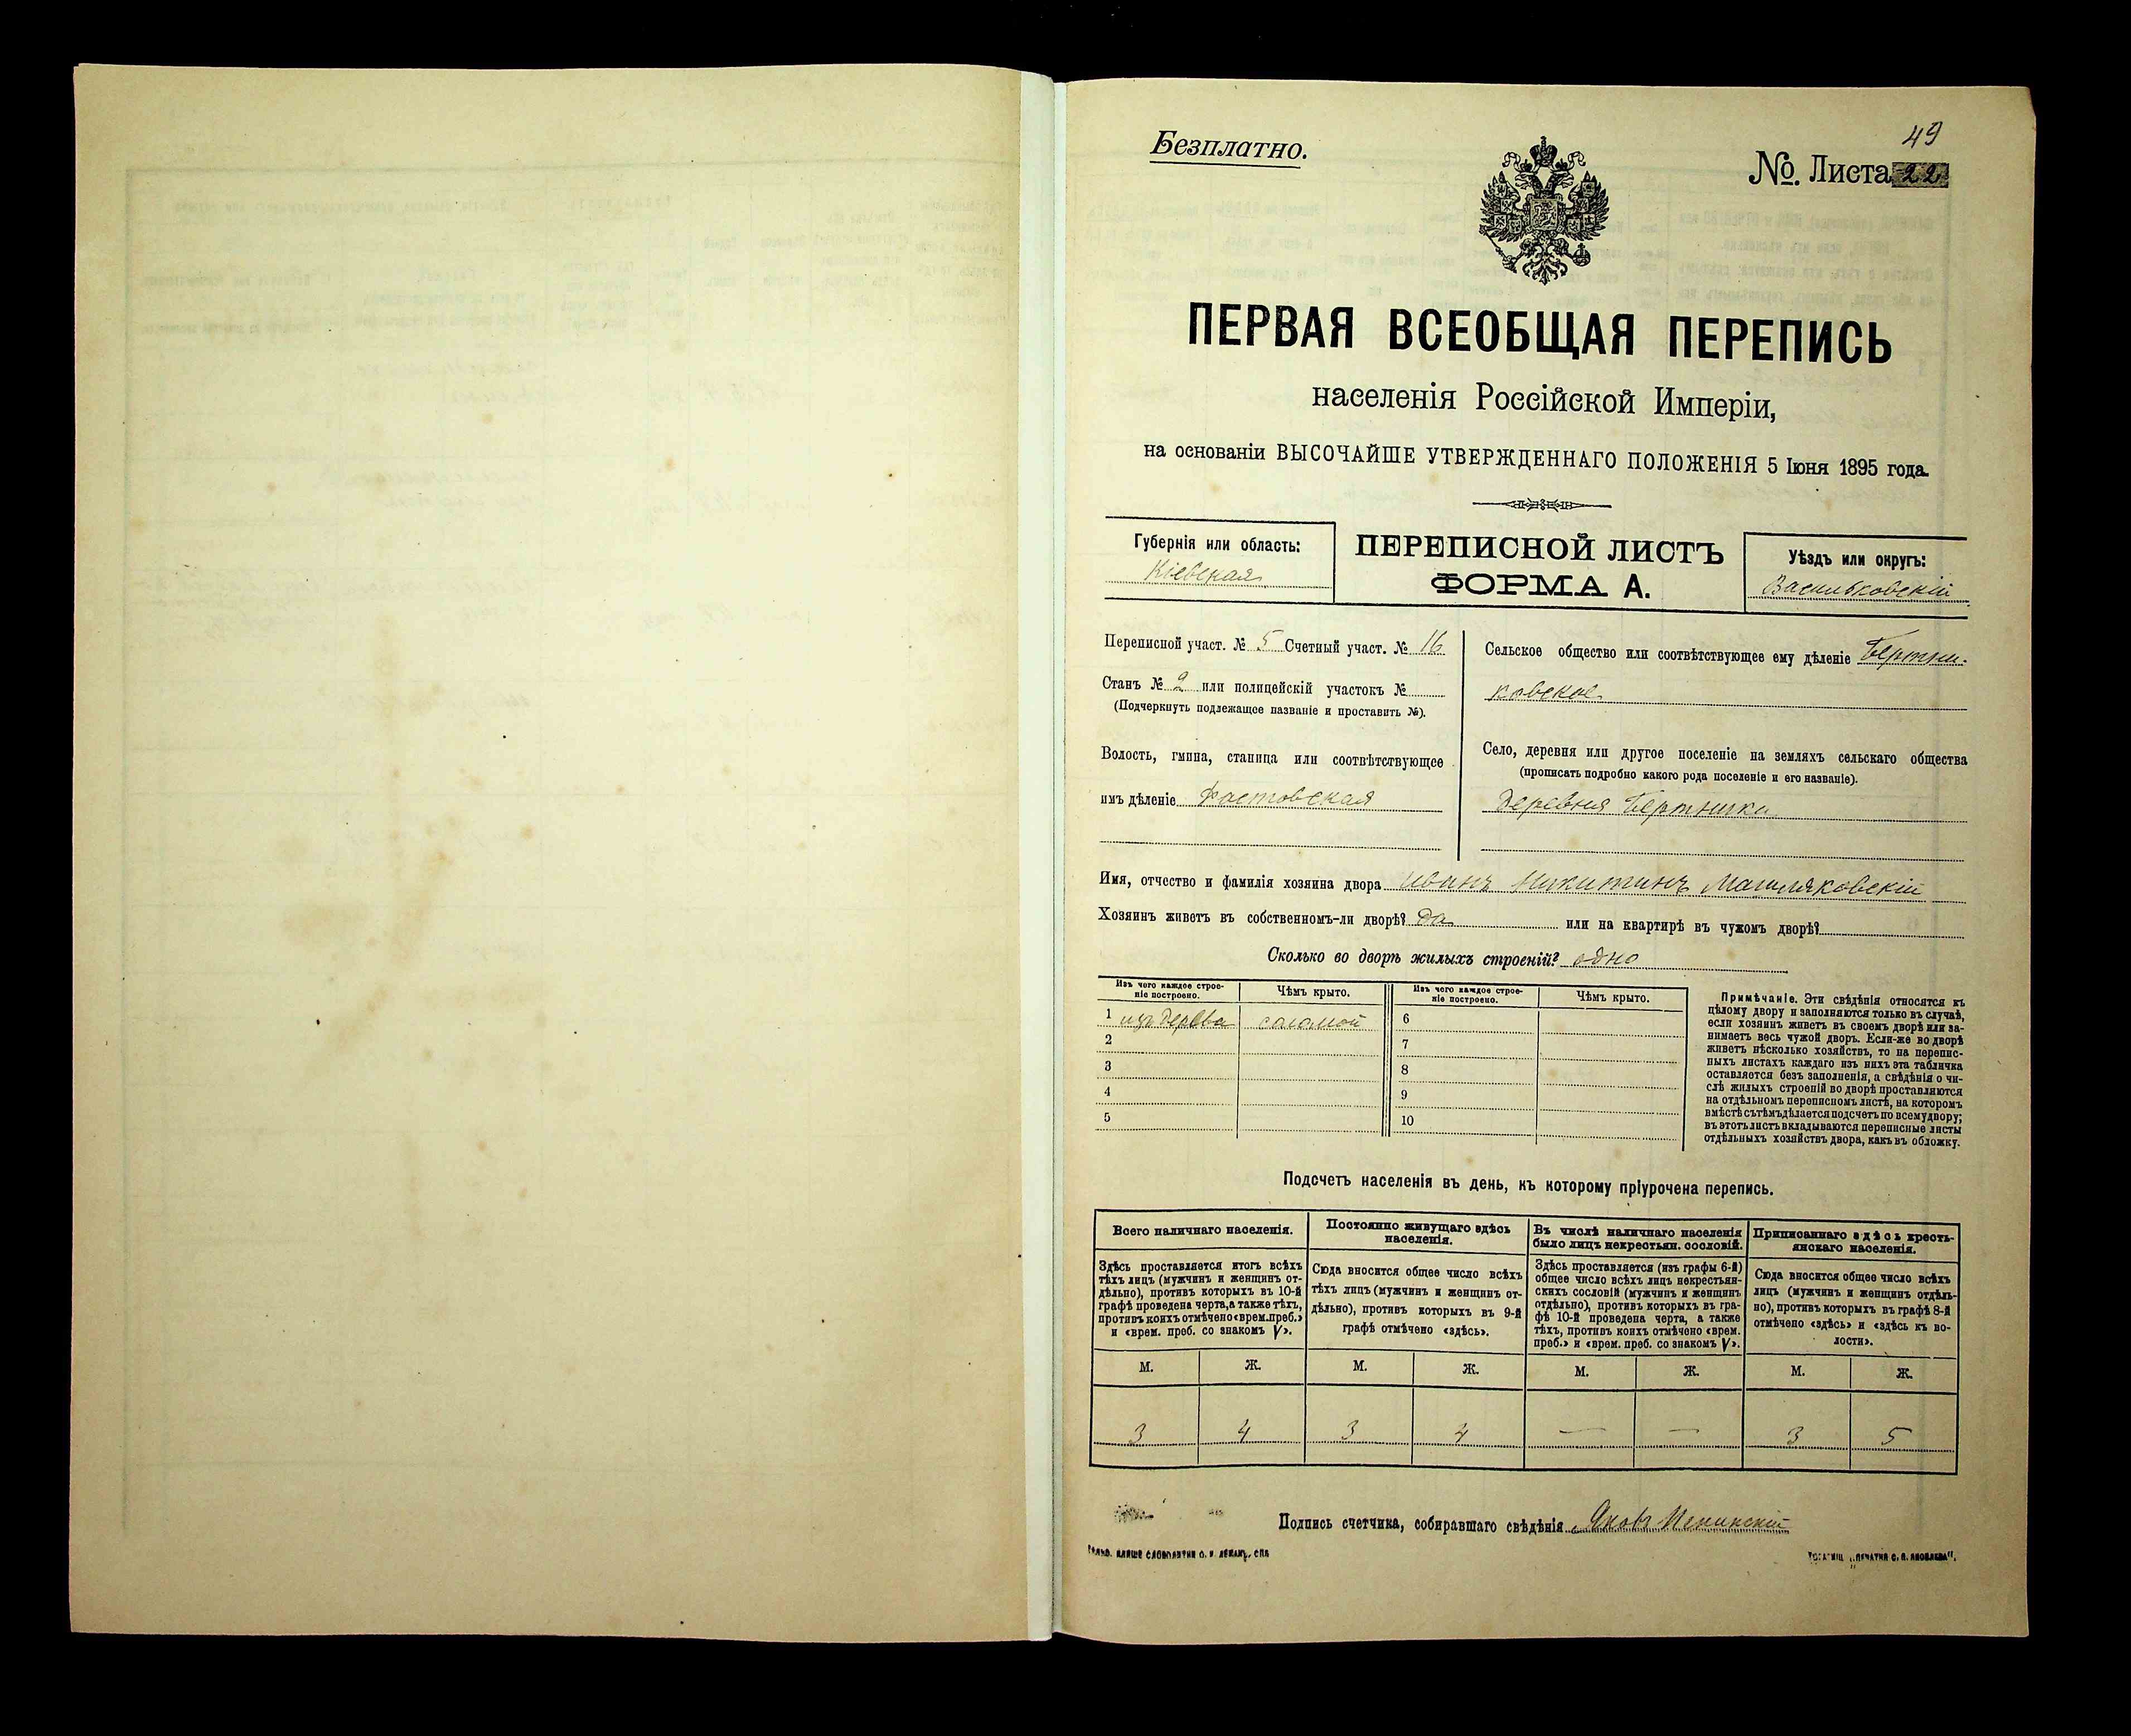 49
Безплатно.
№. Листа 22
ПЕРВАЯ ВСЕОБЩАЯ ПЕРЕПИСЬ
населенія Россійской Имперіи,
на основаніи ВЫСОЧАЙШЕ УТВЕРЖДЕННАГО ПОЛОЖЕНІЯ 5 Іюня 1895 года.
Губернія или область:
Кіевская
ПЕРЕПИСНОЙ ЛИСТЪ
ФОРМА А.
Уѣздъ или округъ:
Васильковскій
Переписной участ. № 5 Счетный участ. № 16
Станъ № 2 или полицейскій участокъ №
(Подчеркнуть подлежащее названіе и проставить №).
Волость, гмина, станица или соотвѣтствующее
имъ дѣленіе Фастовская
Сельское общество или соотвѣтствующее ему дѣленіе Бертни-
ковское
Село, деревня или другое поселеніе на земляхъ сельскаго общества
(прописать подробно какого рода поселеніе и его названіе).
Деревня Бертники
Имя, отчество и фамилія хозяина двора Иванъ Никитинъ
Хозяинъ живетъ въ собственномъ-ли дворѣ? да или на квартирѣ въ чужомъ дворѣ?
Сколько во дворѣ жилыхъ строеній? одно
Изъ чего каждое строе-
ніе построено.
Чѣмъ крыто.
Изъ чего каждое строе-
ніе построено.
Чѣмъ крыто.
1 изъ дерева соломой 6
2 7
3 8
4 9
5 10
Примѣчаніе. Эти свѣдѣнія относятся къ
цѣлому двору и заполняются только въ случаѣ,
если хозяинъ живетъ въ своемъ дворѣ или за-
нимаетъ весь чужой дворъ. Если-же во дворѣ
живетъ нѣсколько хозяйствъ, то на перепис-
ныхъ листахъ каждаго изъ нихъ эта табличка
оставляется безъ заполненія, а свѣдѣнія о чи-
слѣ жилыхъ строеній во дворѣ проставляются
на отдѣльномъ переписномъ листѣ, на которомъ
вмѣстѣ съ тѣмъ дѣлается подсчетъ по всему двору;
въ этотъ листъ вкладываются переписные листы
отдѣльныхъ хозяйствъ двора, какъ въ обложку.
Подсчетъ населенія въ день, къ которому пріурочена перепись.
Всего наличнаго населенія.
Здѣсь проставляется итогъ всѣхъ
тѣхъ лицъ (мужчинъ и женщинъ от-
дѣльно), противъ которыхъ въ 10-й
графѣ проведена черта, а также тѣхъ,
противъ коихъ отмѣчено «врем. преб.»
и «врем. преб. со знакомъ V».
Постоянно живущаго здѣсь
населенія.
Сюда вносится общее число всѣхъ
тѣхъ лицъ (мужчинъ и женщинъ от-
дѣльно), противъ которыхъ въ 9-й
графѣ отмѣчено «здѣсь».
Въ числѣ наличнаго населенія
было лицъ некрестьян. сословій.
Здѣсь проставляется (изъ графы 6-й)
общее число всѣхъ лицъ некрестьян-
скихъ сословій (мужчинъ и женщинъ
отдѣльно), противъ которыхъ въ гра-
фѣ 10-й проведена черта, а также
тѣхъ, противъ коихъ отмѣчено «врем.
преб.» и «врем. преб. со знакомъ V».
Приписаннаго здѣсь кресть-
янскаго населенія.
Сюда вносится общее число всѣхъ
лицъ (мужчинъ и женщинъ отдѣль-
но), противъ которыхъ въ графѣ 8-й
отмѣчено «здѣсь» и «здѣсь къ во-
лости».
М. Ж. М. Ж. М. Ж. М. Ж.
3 4 3 4 — — 3 5
Подпись счетчика, собиравшаго свѣдѣнія Яковъ